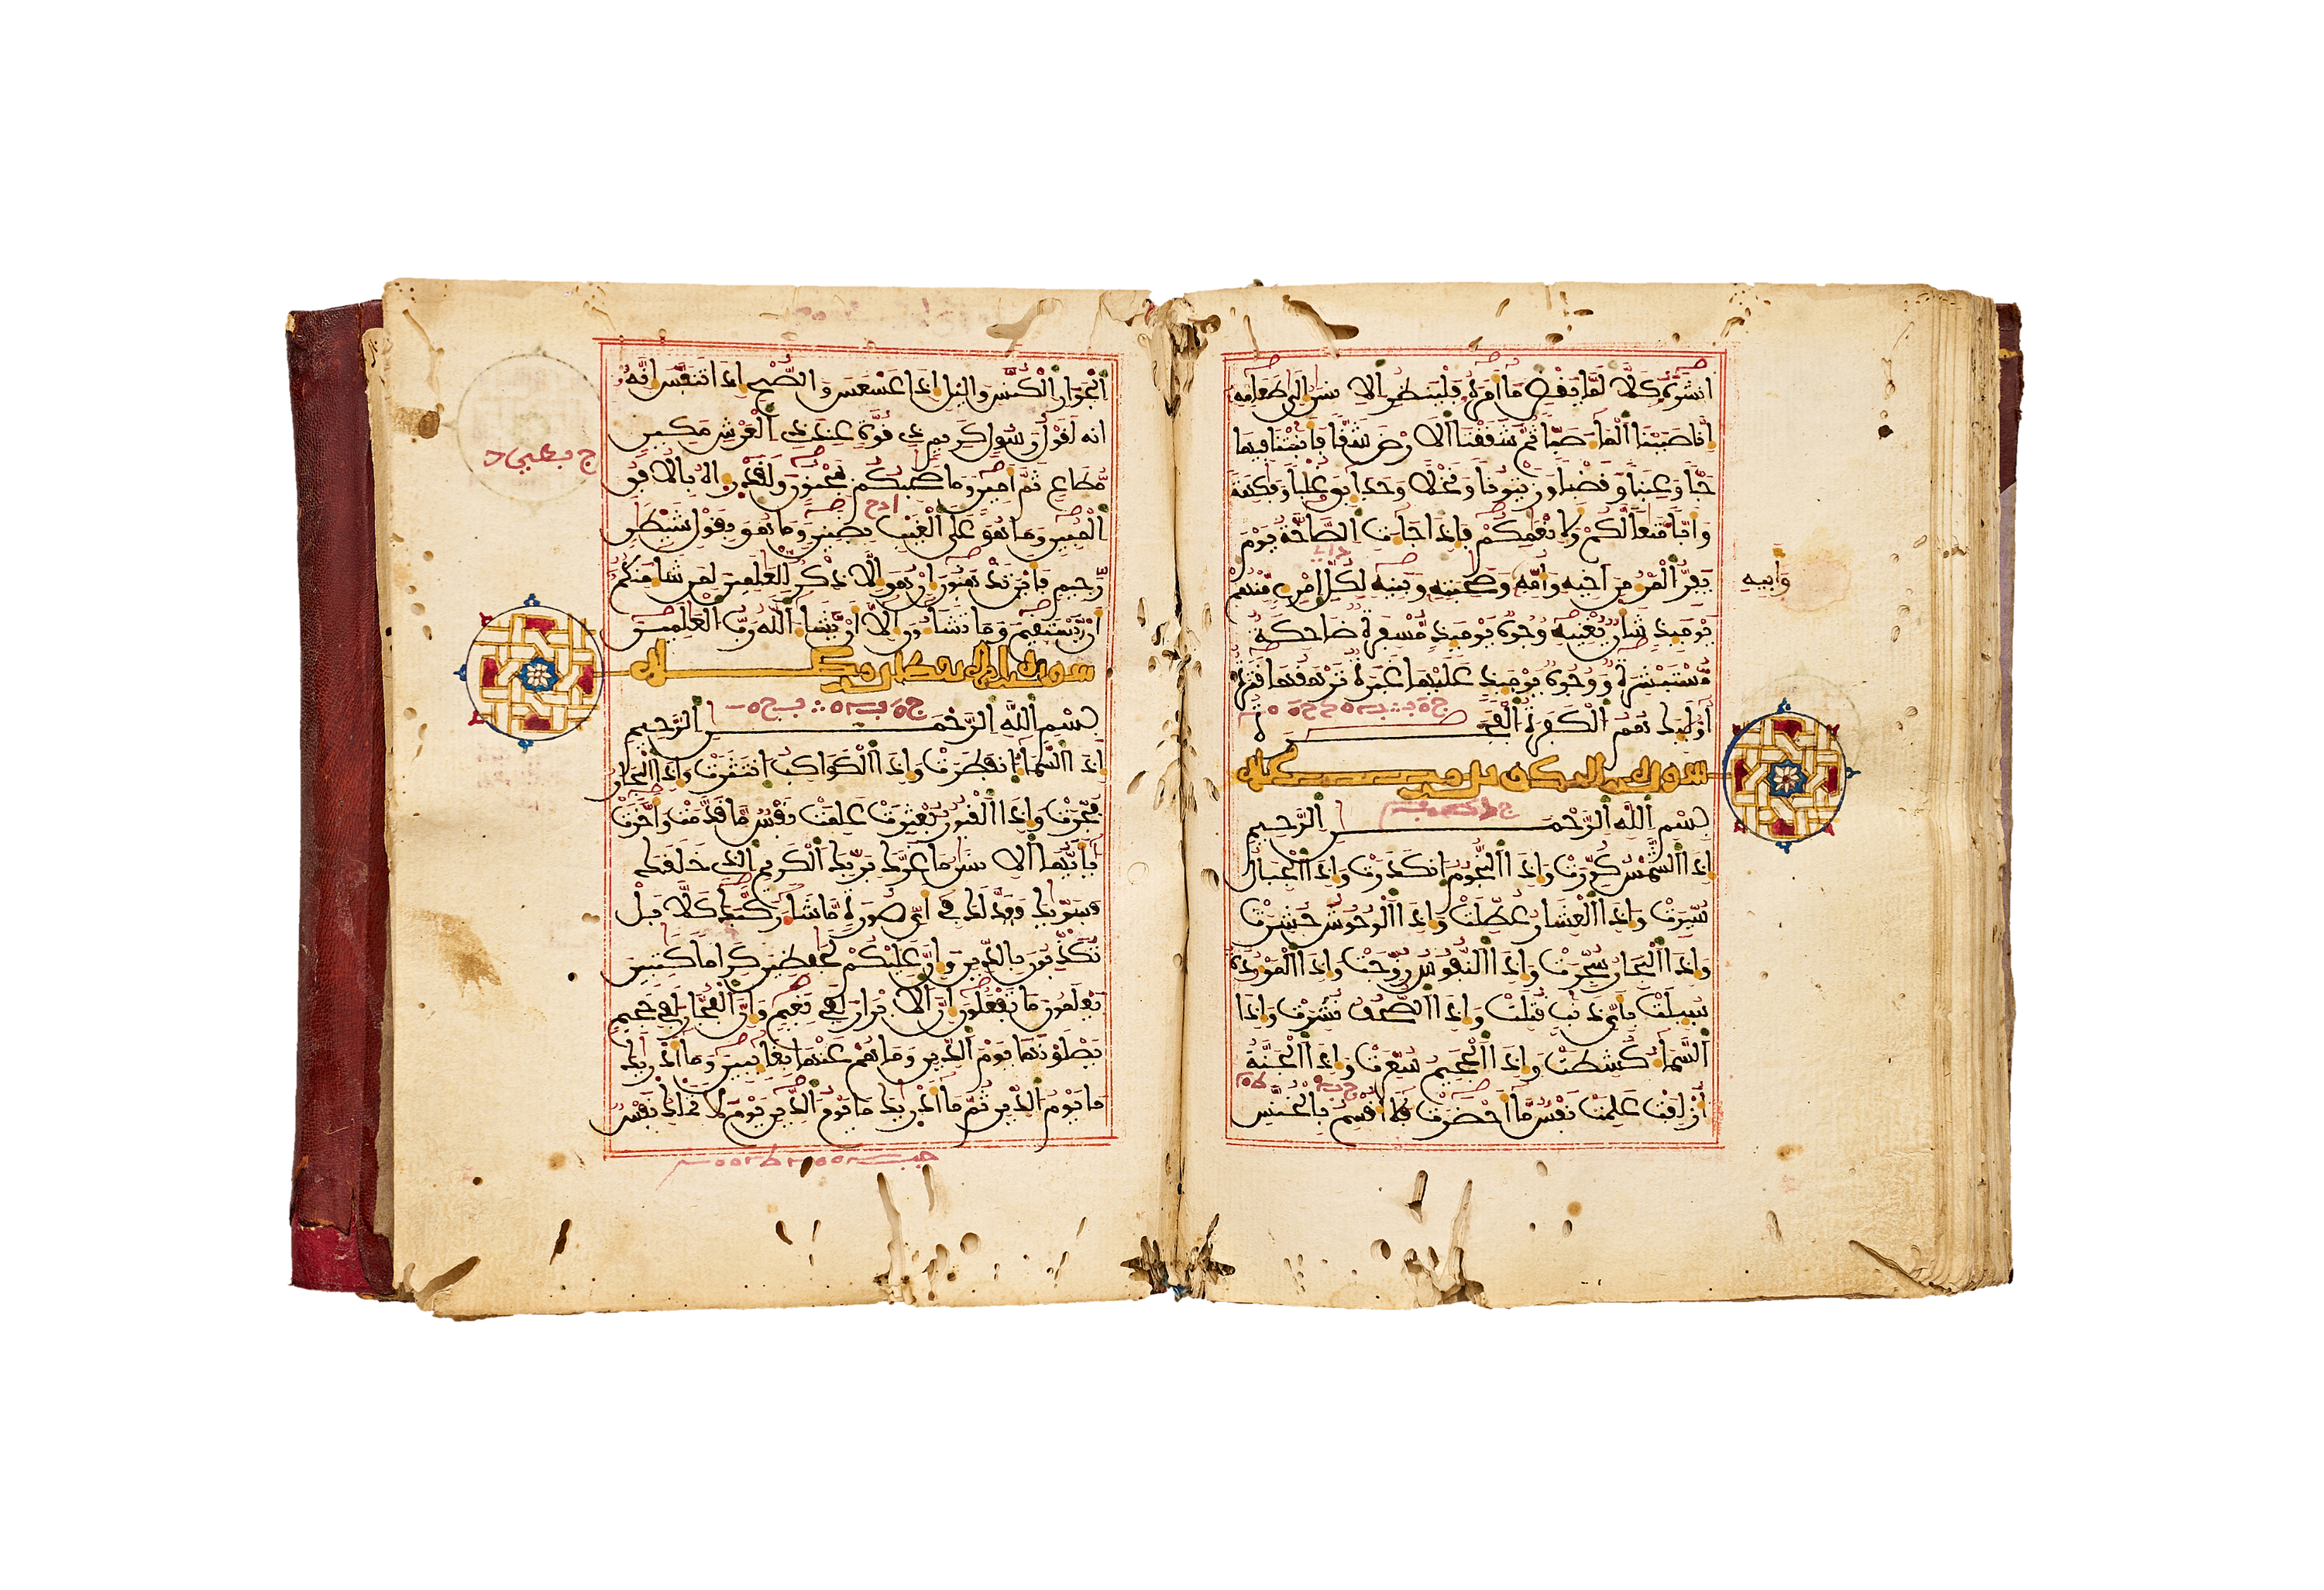 أنشره كلا لما يقض ما أمره فلينظر الانسن الى طعامه
انا صببنا الماء صبا ثم شققنا الارض شقا فانبتنا فيها
حبا وعنبا وقضبا وزيتونا ونخلا وحدايق غلبا وفكهة
وابا متعا لكم ولانعمكم فاذا جاءت الصاخة يوم
يفر المرء من اخيه وامه وصحبته وبنيه لكل امرئ منهم
وابيه
يوميذ شان يغنيه وجوه يوميذ مسفرة ضاحكة
مستبشرة ووجوه يوميذ عليها غبرة ترهقها قترة
أوليك هم الكفرة الفجرة
سورة التكوير مكية
بسم الله الرحمن الرحيم
اذا الشمس كورت واذا النجوم انكدرت واذا الجبال
سيرت واذا العشار عطلت واذا الوحوش حشرت
واذا البحار سجرت واذا النفوس زوجت واذا الموءدة
سيلت باي ذنب قتلت واذا الصحف نشرت واذا
السماء كشطت واذا الجحيم سعرت واذا الجنة
أزلفت علمت نفس ما احضرت فلا اقسم بالخنس
الجوار الكنس واليل اذا عسعس والصبح اذا تنفس انه
انه لقول رسول كريم ذي قوة عند ذي العرش مكين
مطاع ثم امين وما صحبكم بمجنون ولقد راه بالافق
المبين وما هو على الغيب بضنين وما هو بقول شيطن
رجيم فاين تذهبون ان هو الا ذكر للعلمين لمن شاء منكم
ان يستقيم وما تشاءون الا ان يشاء الله رب العلمين
سورة الانفطار مكية
بسم الله الرحمن الرحيم
اذا السماء انفطرت واذا الكواكب انتثرت واذا البحار
فجرت واذا القبور بعثرت علمت نفس ما قدمت واخرت
يايها الانسن ما غرك بربك الكريم الذي خلقك
فسويك فعدلك في اي صورة ما شاء ركبك كلا بل
تكذبون بالدين وان عليكم لحفظين كراما كتبين
يعلمون ما تفعلون ان الابرار لفي نعيم وان الفجار لفي جحيم
يصلونها يوم الدين وما هم عنها بغايبين وما ادريك
ما يوم الدين ثم ما ادريك ما يوم الدين يوم لا تملك نفس